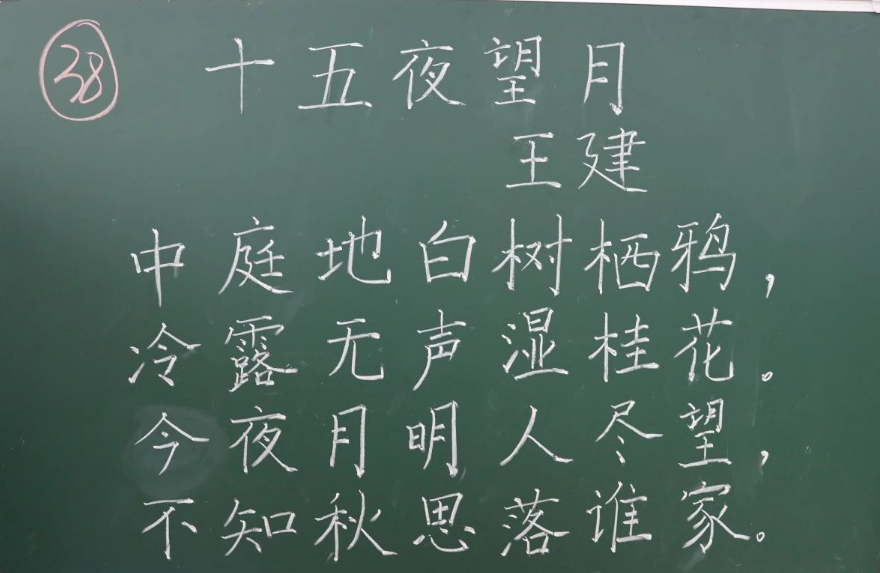 38 十五夜望月
王建
中庭地白树栖鸦，
冷露无声湿桂花。
今夜月明人尽望，
不知秋思落谁家。